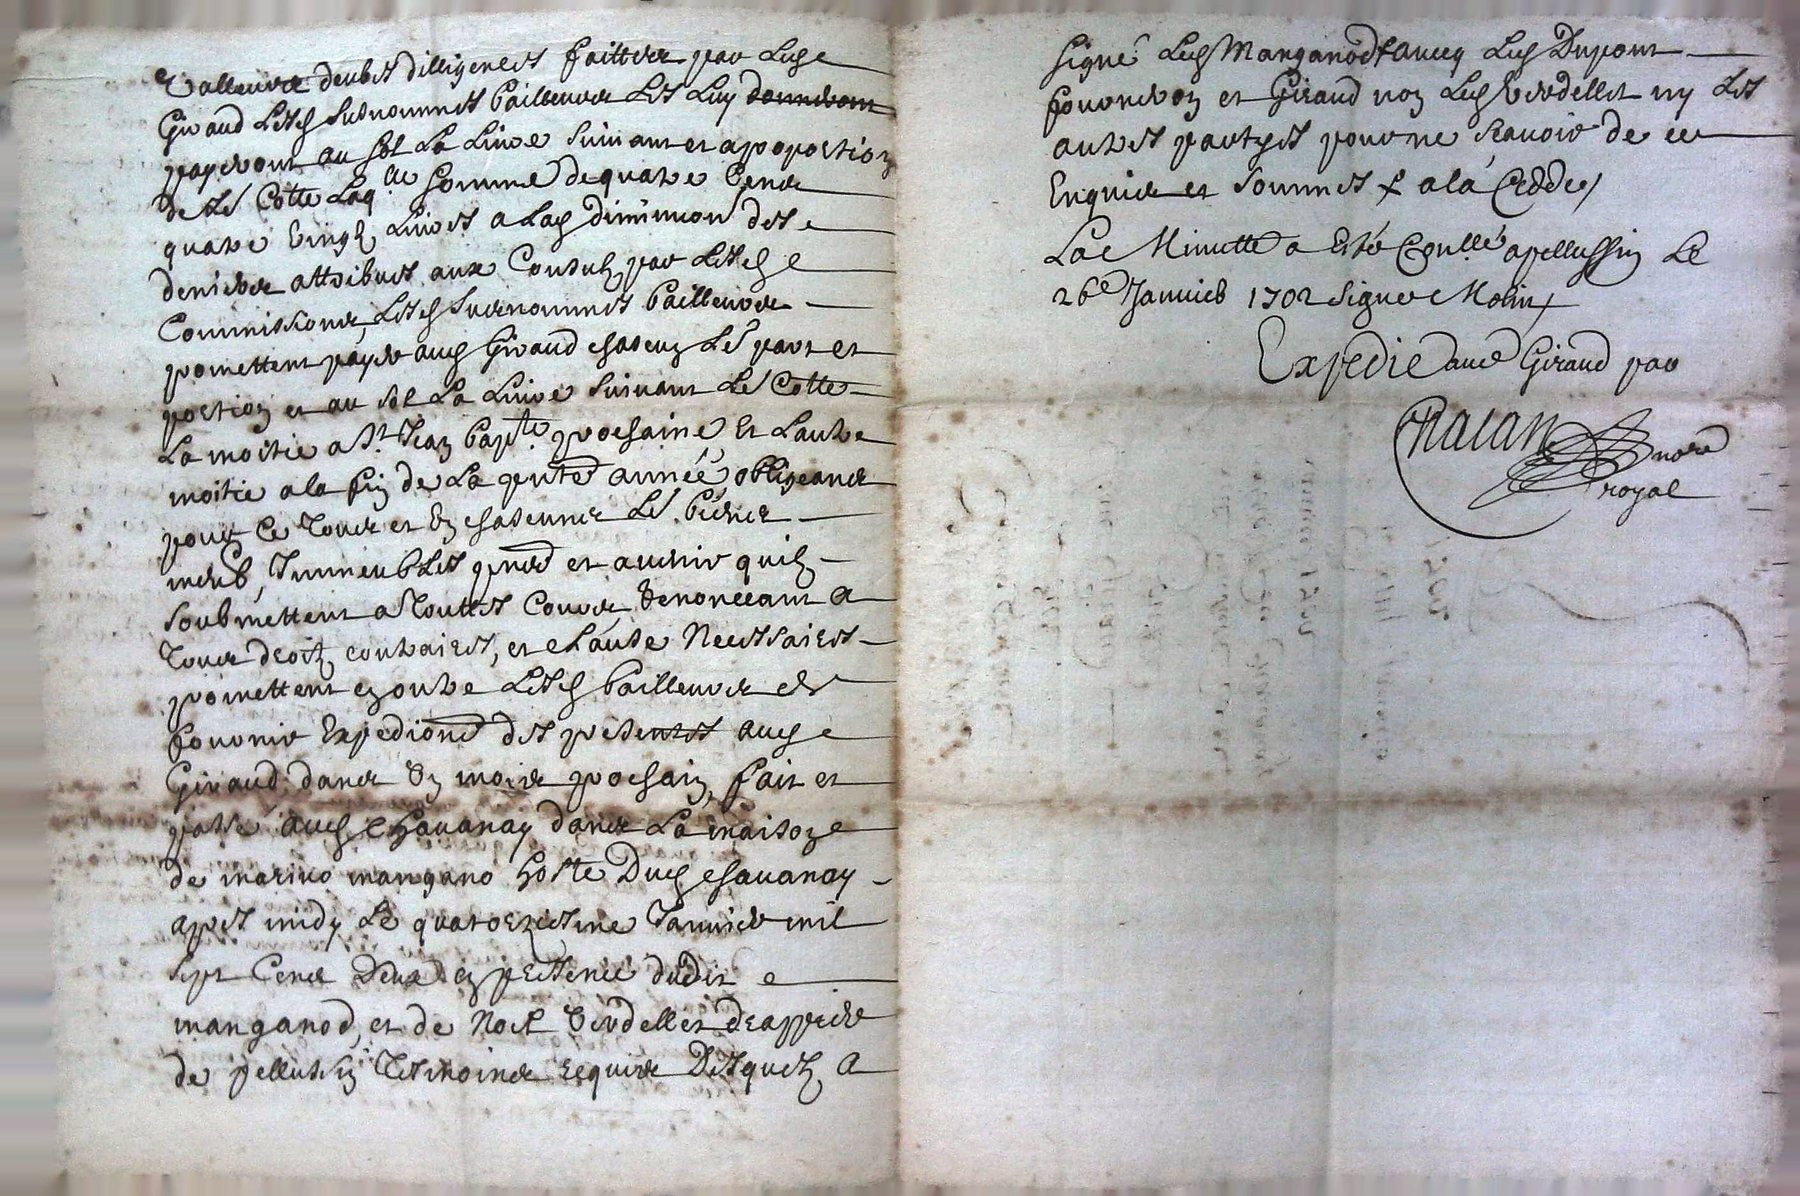 Valleurs deubes dilligences faittes par Led
Giraud Lesd susnommes bailleurs Les Luy donneront
payeront au sol La Livre suivant et a proportion
de Le Cotte Laq. somme de quatre Cens
quatre vingt Livres a Lad diminution des
deniers attribues aux Consuls par Lesd
Commissions, Lesd surnommes bailleurs
promettent payer aud Giraud chascun Le part et
portion et au sol La Livre suivant Le Cotte
La moitie a St Jean bapte prochaine et Lautre
moitie a la fin de La pnte année obligeans
pour Ce Tous et Un chascuns Le biens
meub, Immeubles pnts et avenir quils
soubmettent a Touttes Cours, Renonceant a
Tous droits contraires, et clause Necessaires
promettent en outre Lesd bailleurs de
fournir Expedions des presentes aud
Giraud dans Un mois prochain, fait et
passé aud Chavanay dans La maison
de marino mangano hoste Dud chavanay
apres midy Le quatorziesme Janvier mil
sept Cens Deux en presence dudit
manganod, et de Noel Verdellet drappier
de pellussin Tesmoins requis Desquels a
signé Led Manganod avecq Led Dupont
fournron et Giraud non Led Verdellet ny Les
autres partyes pour ne scavoir de ce
Enquis et sommes f a la Cedde /
La Minutte a Esté Conllé a pellussin Le
26e Janvier 1702 Signé Molin /
Expedié aud Giraud par
Chalan
nore
royal